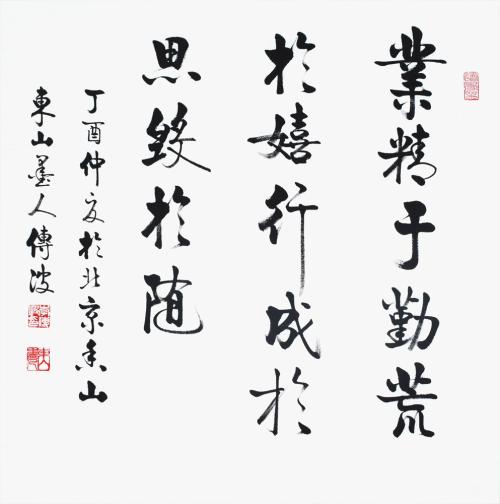 業精于勤荒
於嬉行成於
思毀於随
丁酉仲夏於北京香山
東山墨人傳波